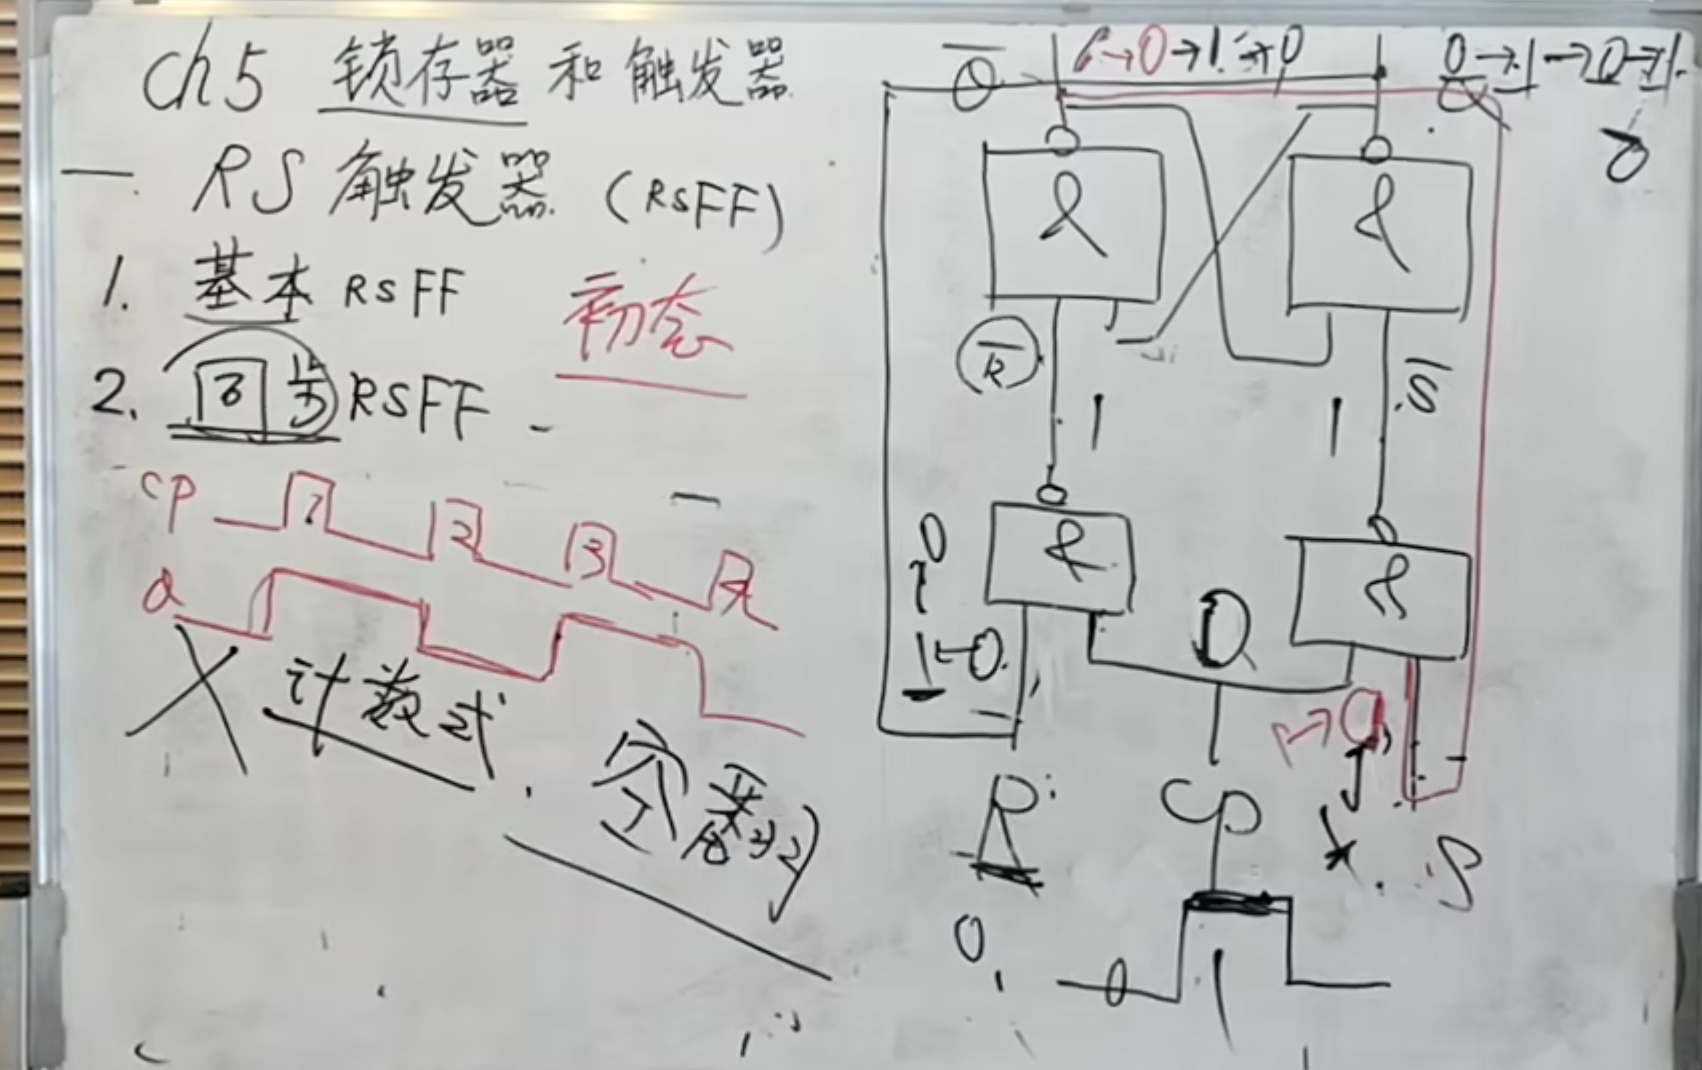 ch5 锁存器和触发器
一 RS触发器 (RSFF)
1. 基本RSFF
初态
2. 同步RSFF
CP 1 2 3
Q
计数式.
空翻
Q 1→0→1→0
Q 0→1→0→1
0
& &
R S
1 1
& &
0
1←0
0
R CP S
0
0 1